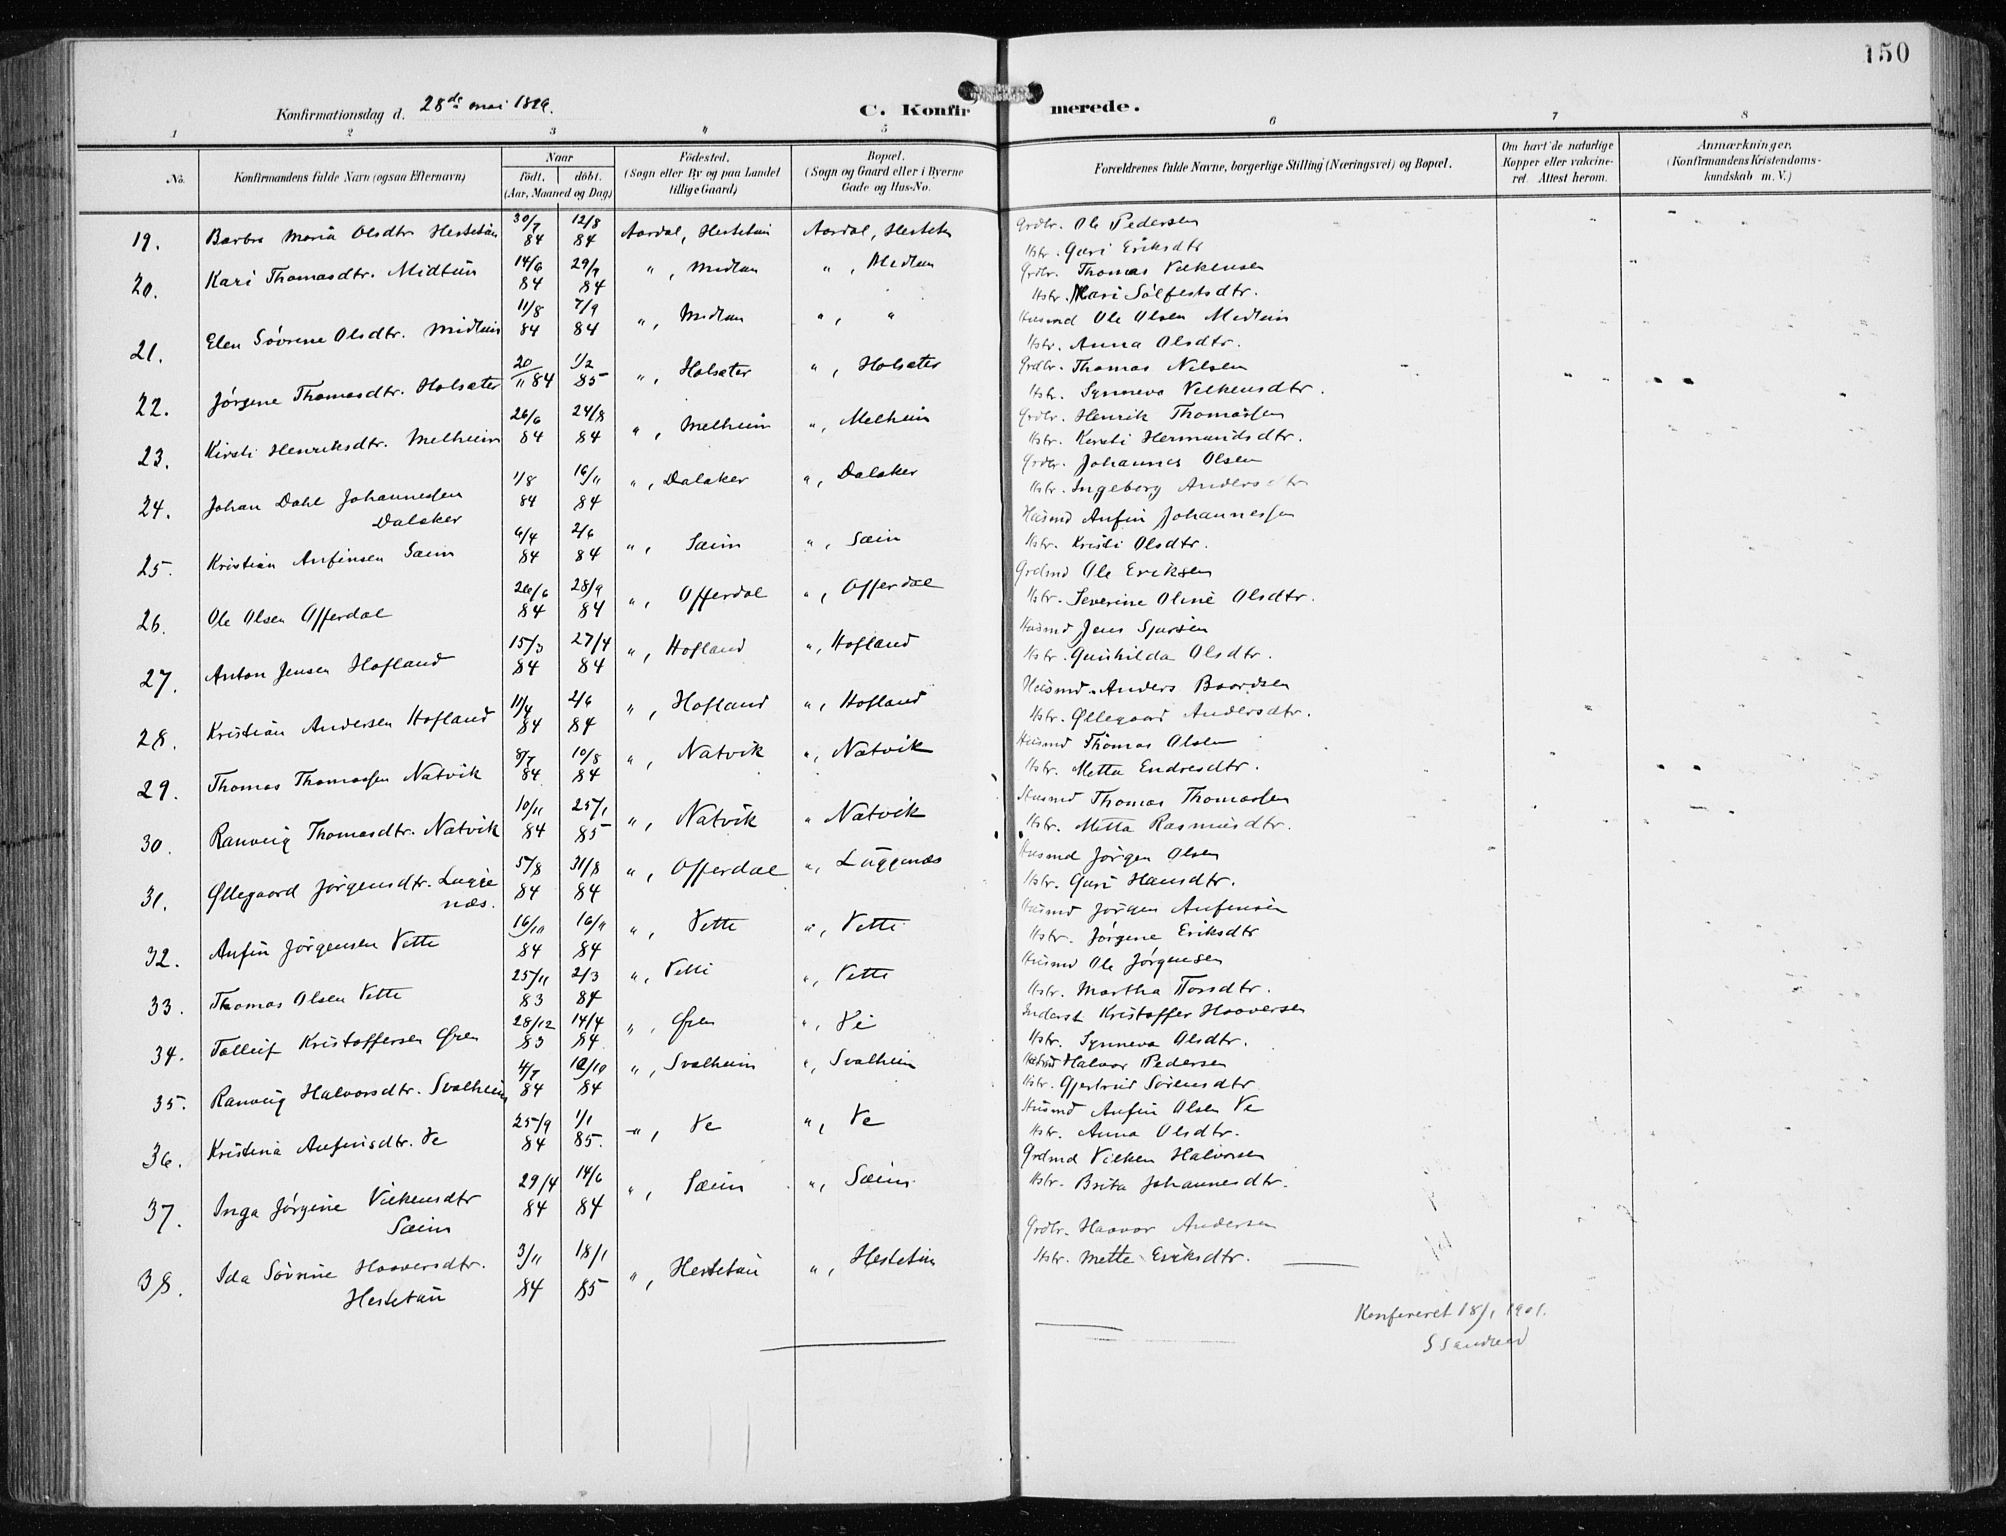 150
Konfirmationsdag d. 28de mai 1899.
C. Konfirmerede.
1 2 3 4 5 6 7 8
No.
Konfirmandens fulde Navn (ogsaa Efternavn)
Naar
födt. döbt.
(Aar, Maaned og Dag)
Födested.
(Sogn eller By og paa Landet
tillige Gaard)
Bopæl.
(Sogn og Gaard eller i Byerne
Gade og Hus-No.
Forældrenes fulde Navne, borgerlige Stilling (Næringsvei) og Bopæl.
Om havt de naturlige
Kopper eller vakcine-
ret. Attest herom.
Anmærkninger.
(Konfirmandens Kristendoms-
kundskab m. V.)
19. Barbra Maria Olsdtr Hestetun 30/7 84 12/8 84 Aardal, Hestetun Aardal, Hestetun Grdbr. Ole Pedersen
Hstr. Guri Eriksdtr
20. Kari Thomasdtr. Midtun 14/6 84 29/7 84 ", Midtun ", Midtun Grdbr. Thomas Vilkensen
Hstr. Kari Sølfestsdtr.
21. Elen Søvrene Olsdtr. Midtun 11/8 84 7/9 84 ", Midtun ", " Husmd Ole Olsen Midtun
Hstr. Anna Olsdtr.
22. Jørgine Thomasdtr. Holsæter 20/11 84 1/2 85 ", Holsæter ", Holsæter Grdbr. Thomas Nilsen
Hstr. Synneva Vilkensdtr.
23. Kirsti Henriksdtr. Melheim 26/6 84 24/8 84 ", Melheim ", Melheim Grdbr. Henrik Thomassen
Hstr. Kersti Hermundsdtr.
24. Johan Dahl Johannessen
Dalaker 1/8 84 16/11 84 ", Dalaker ", Dalaker Grdbr. Johannes Olsen
Hstr. Ingeborg Andersdtr
25. Kristian Anfinsen Sæim 6/4 84 2/6 84 ", Sæim ", Sæim Husmd Anfin Johannessen
Hstr. Kristi Olsdtr.
26. Ole Olsen Offerdal 26/6 84 28/9 84 ", Offerdal ", Offerdal Grdmd Ole Eriksen
Hstr. Severine Oline Olsdtr.
27. Anton Jensen Hofland 15/3 84 27/4 84 ", Hofland ", Hofland Husmd Jens Sjursen
Hstr. Gunhilda Olsdtr.
28. Kristian Andersen Hofland 11/4 84 2/6 84 ", Hofland ", Hofland Husmd. Anders Baardsen
Hstr. Øllegaard Andersdtr.
29. Thomas Thomassen Natvik 8/7 84 10/8 84 ", Natvik ", Natvik Husmd Thomas Olsen
Hstr. Metta Endresdtr.
30. Ranveig Thomasdtr. Natvik 10/11 84 25/1 85 ", Natvik " Natvik Husmd Thomas Thomassen
Hstr. Metta Rasmusdtr.
31. Øllegaard Jørgensdtr. Lugge
næs. 5/8 84 31/8 84 ", Offerdal ", Luggenæs Husmd Jørgen Olsen
Hstr. Guri Hansdtr.
32. Anfin Jørgensen Vette 16/10 84 16/11 84 ", Vette ", Vette Husmd Jørgen Anfinsen
Hstr. Jørgine Eriksdtr
33. Thomas Olsen Vette 25/11 83 2/3 84 ", Vetti ", Vette Husmd Ole Jørgensen
Hstr. Martha Thosdtr.
34. Tolleif Kristoffersen Øren 28/12 83 14/4 84 ", Øren ", Vi Inderst Kristoffer Haaversen
Hstr. Synneva Olsdtr.
35. Ranveig Halvorsdtr. Svalheim 4/7 84 12/10 84 ", Svalheim ", Svalheim Husmd Halvor Pedersen
Hstr. Gjertrud Sørensdtr
36. Kristina Anfinsdtr. Ve 25/9 84 1/1 85. ", Ve ", Ve Husmd Anfin Olsen Ve
Hstr. Anna Olsdtr.
37. Inga Jørgine Vilkensdtr
Sæim 29/4 84 14/6 84 ", Sæim ", Sæim Grdmd Vilken Halvorsen
Hstr. Brita Johannesdtr.
38. Ida Søvrine Haaversdtr.
Hestetun 3/11 84 18/1 85 ", Hestetun ", Hestetun Grdbr. Haavar Andersen
Hstr. Mette Eriksdtr.
Konfereret 18/1 1901.